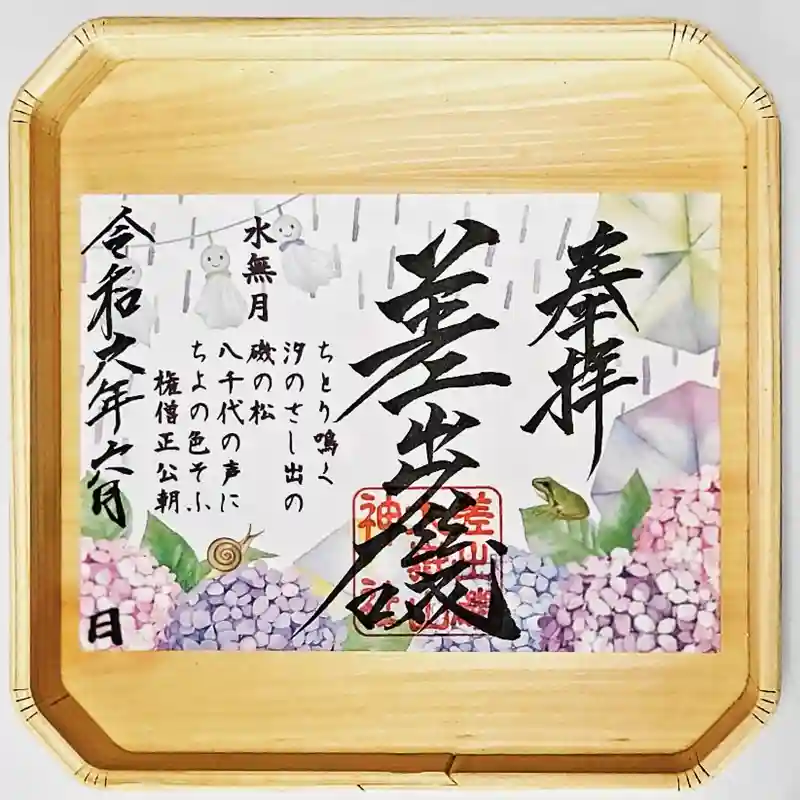 奉拝
差出磯
差出磯
神社
水無月
ちとり鳴く
汐のさし出の
磯の松
八千代の声に
ちよの色そふ
権僧正公朝
令和六年六月
日